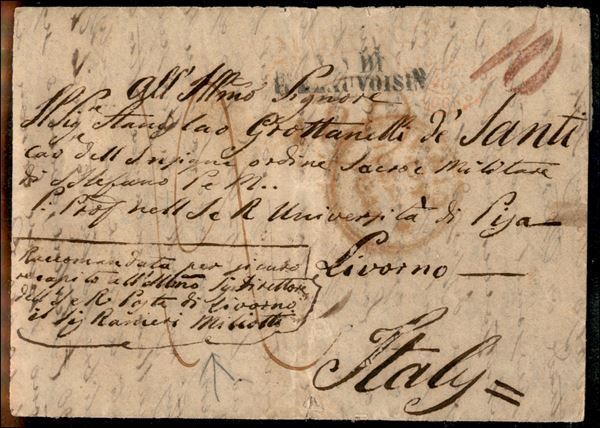 V. DI
P. BEAUVOISIN
10
All'Illmo Signore
Il Sigre Stanislao Grottanelli de' Santi
Cavre dell Insigne ordine Sacro e Militare
di S. Stefano P e M..
Profr nell I e R Università di Pisa
Livorno
Italy
Raccomandata per sicuro
recapito all'Illmo Sig Direttore
dell I e R Posta di Livorno
il Sig Ranieri Miliotti